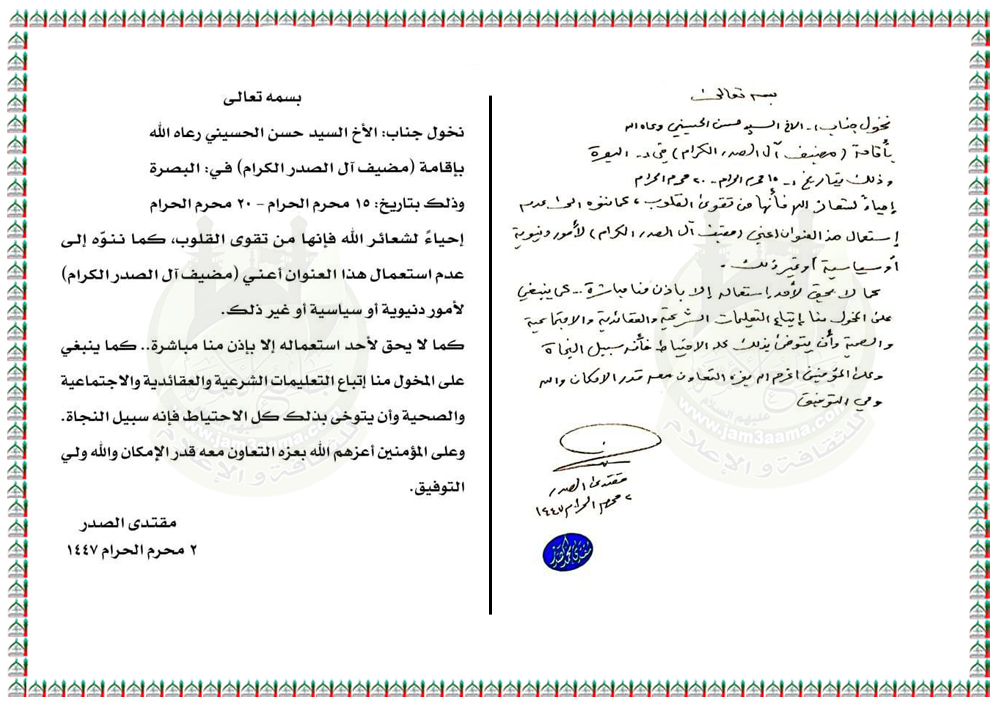 بسمه تعالى
نخول جناب: الأخ السيد حسن الحسيني رعاه الله
بأقامة (مضيف آل الصدر الكرام) في: البصرة
وذلك بتاريخ: ١٥ محرم الحرام - ٢٠ محرم الحرام
إحياءً لشعائر الله فأنها من تقوى القلوب، كما ننوه الى عدم
إستعمال هذا العنوان اعني (مضيف آل الصدر الكرام) لأمور دنيوية
أو سياسية أو غير ذلك.
كما لا يحق لأحد إستعماله إلا بأذن منا مباشرة.. كما ينبغي
على المخول منا إتباع التعليمات الشرعية والعقائدية والاجتماعية
والصحية وأن يتوخى بذلك كل الاحتياط فأنه سبيل النجاة
وعلى المؤمنين أعزهم الله بعزه التعاون معه قدر الامكان والله
ولي التوفيق
مقتدى الصدر
٢ محرم الحرام ١٤٤٧
بسمه تعالى
نخول جناب: الأخ السيد حسن الحسيني رعاه الله
بإقامة (مضيف آل الصدر الكرام) في: البصرة
وذلك بتاريخ: ١٥ محرم الحرام – ٢٠ محرم الحرام
إحياءً لشعائر الله فإنها من تقوى القلوب، كما ننوّه إلى
عدم استعمال هذا العنوان أعني (مضيف آل الصدر الكرام)
لأمور دنيوية أو سياسية أو غير ذلك.
كما لا يحق لأحد استعماله إلا بإذن منا مباشرة.. كما ينبغي
على المخول منا إتباع التعليمات الشرعية والعقائدية والاجتماعية
والصحية وأن يتوخى بذلك كل الاحتياط فإنه سبيل النجاة.
وعلى المؤمنين أعزهم الله بعزه التعاون معه قدر الإمكان والله ولي
التوفيق.
مقتدى الصدر
٢ محرم الحرام ١٤٤٧
www.jam3aama.com
للثقافة والإعلام